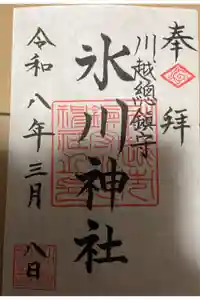 奉拝
川越總鎮守
氷川神社
令和八年三月
八日